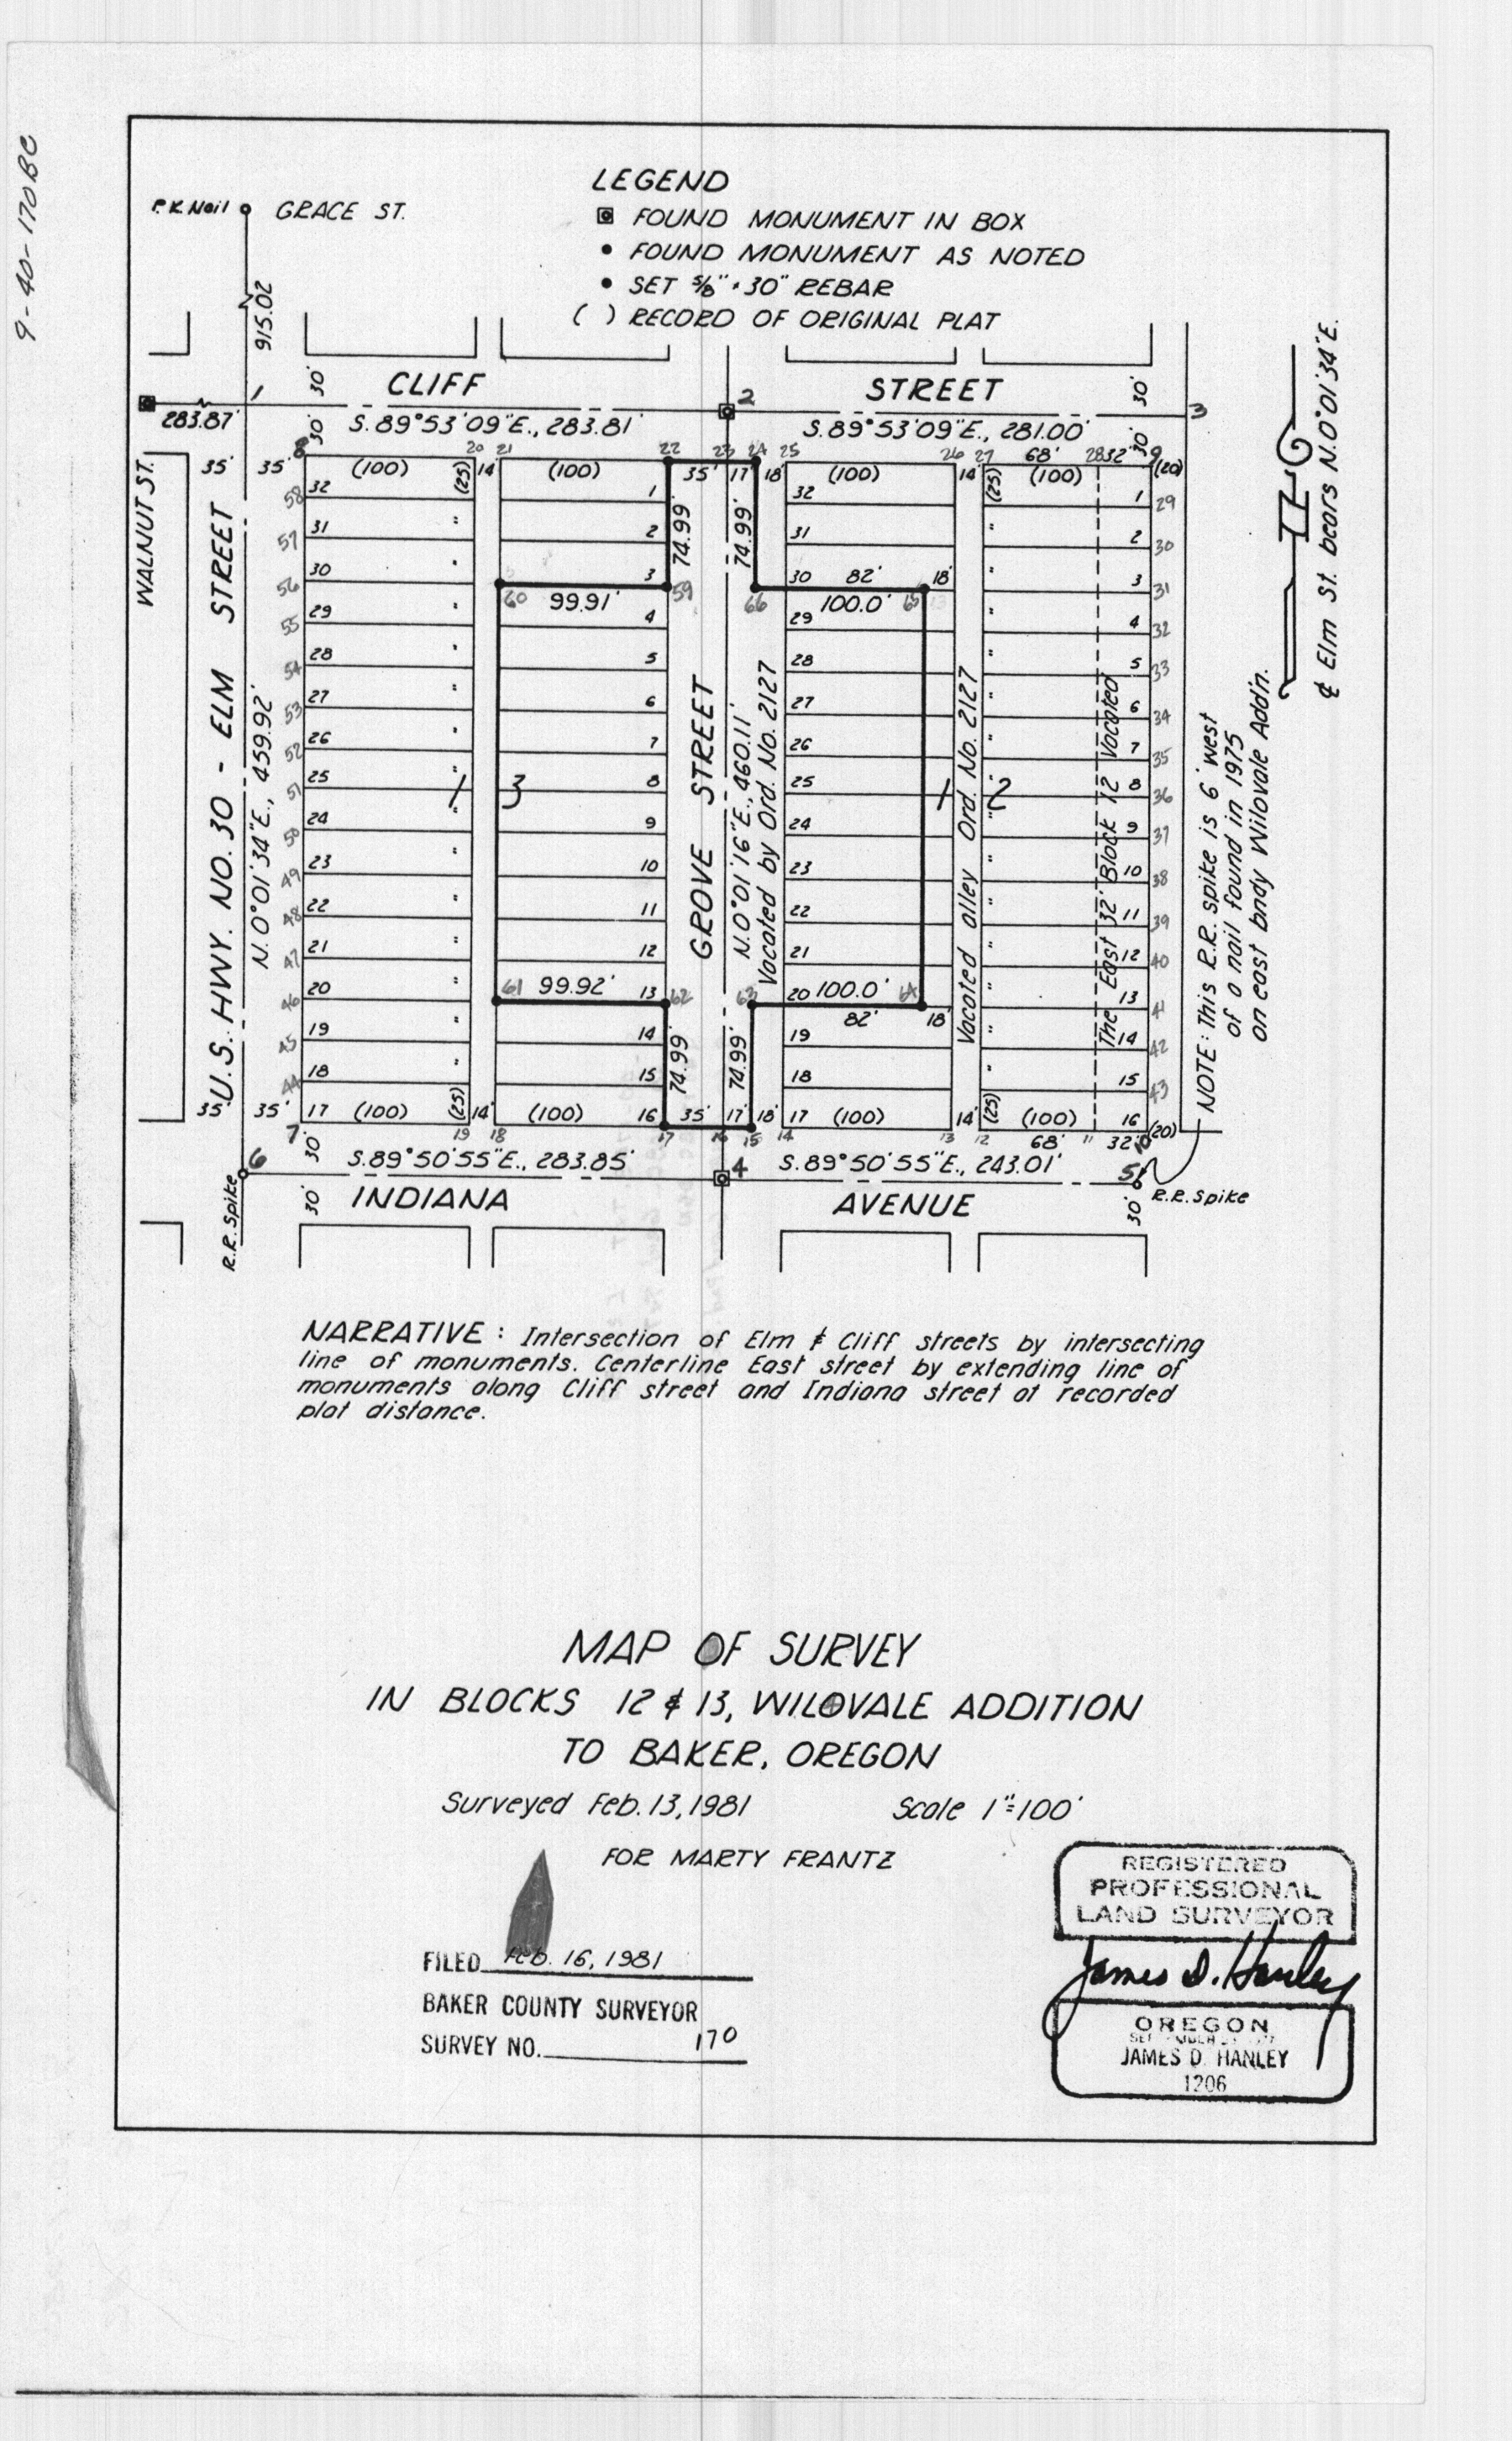 9-40-170BC
LEGEND
FOUND MONUMENT IN BOX
FOUND MONUMENT AS NOTED
SET 5/8" x 30" REBAR
( ) RECORD OF ORIGINAL PLAT
P.K. Nail GRACE ST.
915.02
CLIFF STREET
1 30' 2 30' 3
283.87' 30' S. 89°53'09"E., 283.81' S. 89°53'09"E., 281.00' 30'
8 20 21 22 23 24 25 26 27 68' 28 32' 9
35' 35' (100) (25) 14' (100) 35' 17' 18' (100) 14' (25) (100) (20)
WALNUT ST.
U.S. HWY. NO. 30 - ELM STREET
N. 0°01'34"E., 459.92'
58 32 1 32 1 29
57 31 2 31 2 30
56 30 3 30 82' 18' 3 31
74.99' 74.99'
60 99.91' 59 66 100.0' 65
55 29 4 29 4 32
54 28 5 28 5 33
53 27 6 27 6 34
52 26 7 26 7 35
51 25 1 3 8 25 1 2 8 36
50 24 9 24 9 37
49 23 10 23 10 38
48 22 11 22 11 39
47 21 12 21 12 40
46 20 61 99.92' 13 62 63 20 100.0' 64 13 41
82' 18'
45 19 14 19 14 42
44 18 15 18 15 43
74.99' 74.99'
GROVE STREET
N. 0°01'16"E., 460.11'
Vacated by Ord. No. 2127
Vacated alley Ord. No. 2127
The East 32' Block 12 Vacated
35' 35' 17 (100) (25) 14' (100) 16 35' 17' 18' 17 (100) 14' (25) (100) 16 (20)
7 19 18 17 16 15 14 13 12 68' 11 32' 10
6 30' S. 89°50'55"E., 283.85' 4 S. 89°50'55"E., 243.01' 5
R.R. Spike 30' INDIANA AVENUE 30' R.R. Spike
NOTE: This R.R. spike is 6' west
of a nail found in 1975
on east bndy Wilovale Add'n.
℄ Elm St. bears N. 0°01'34"E.
NARRATIVE: Intersection of Elm & Cliff streets by intersecting
line of monuments. Centerline East street by extending line of
monuments along Cliff street and Indiana street at recorded
plat distance.
MAP OF SURVEY
IN BLOCKS 12 & 13, WILOVALE ADDITION
TO BAKER, OREGON
Surveyed Feb. 13, 1981 Scale 1"=100'
FOR MARTY FRANTZ
FILED Feb. 16, 1981
BAKER COUNTY SURVEYOR
SURVEY NO. 170
REGISTERED
PROFESSIONAL
LAND SURVEYOR
James D. Hanley
OREGON
JAMES D. HANLEY
1206